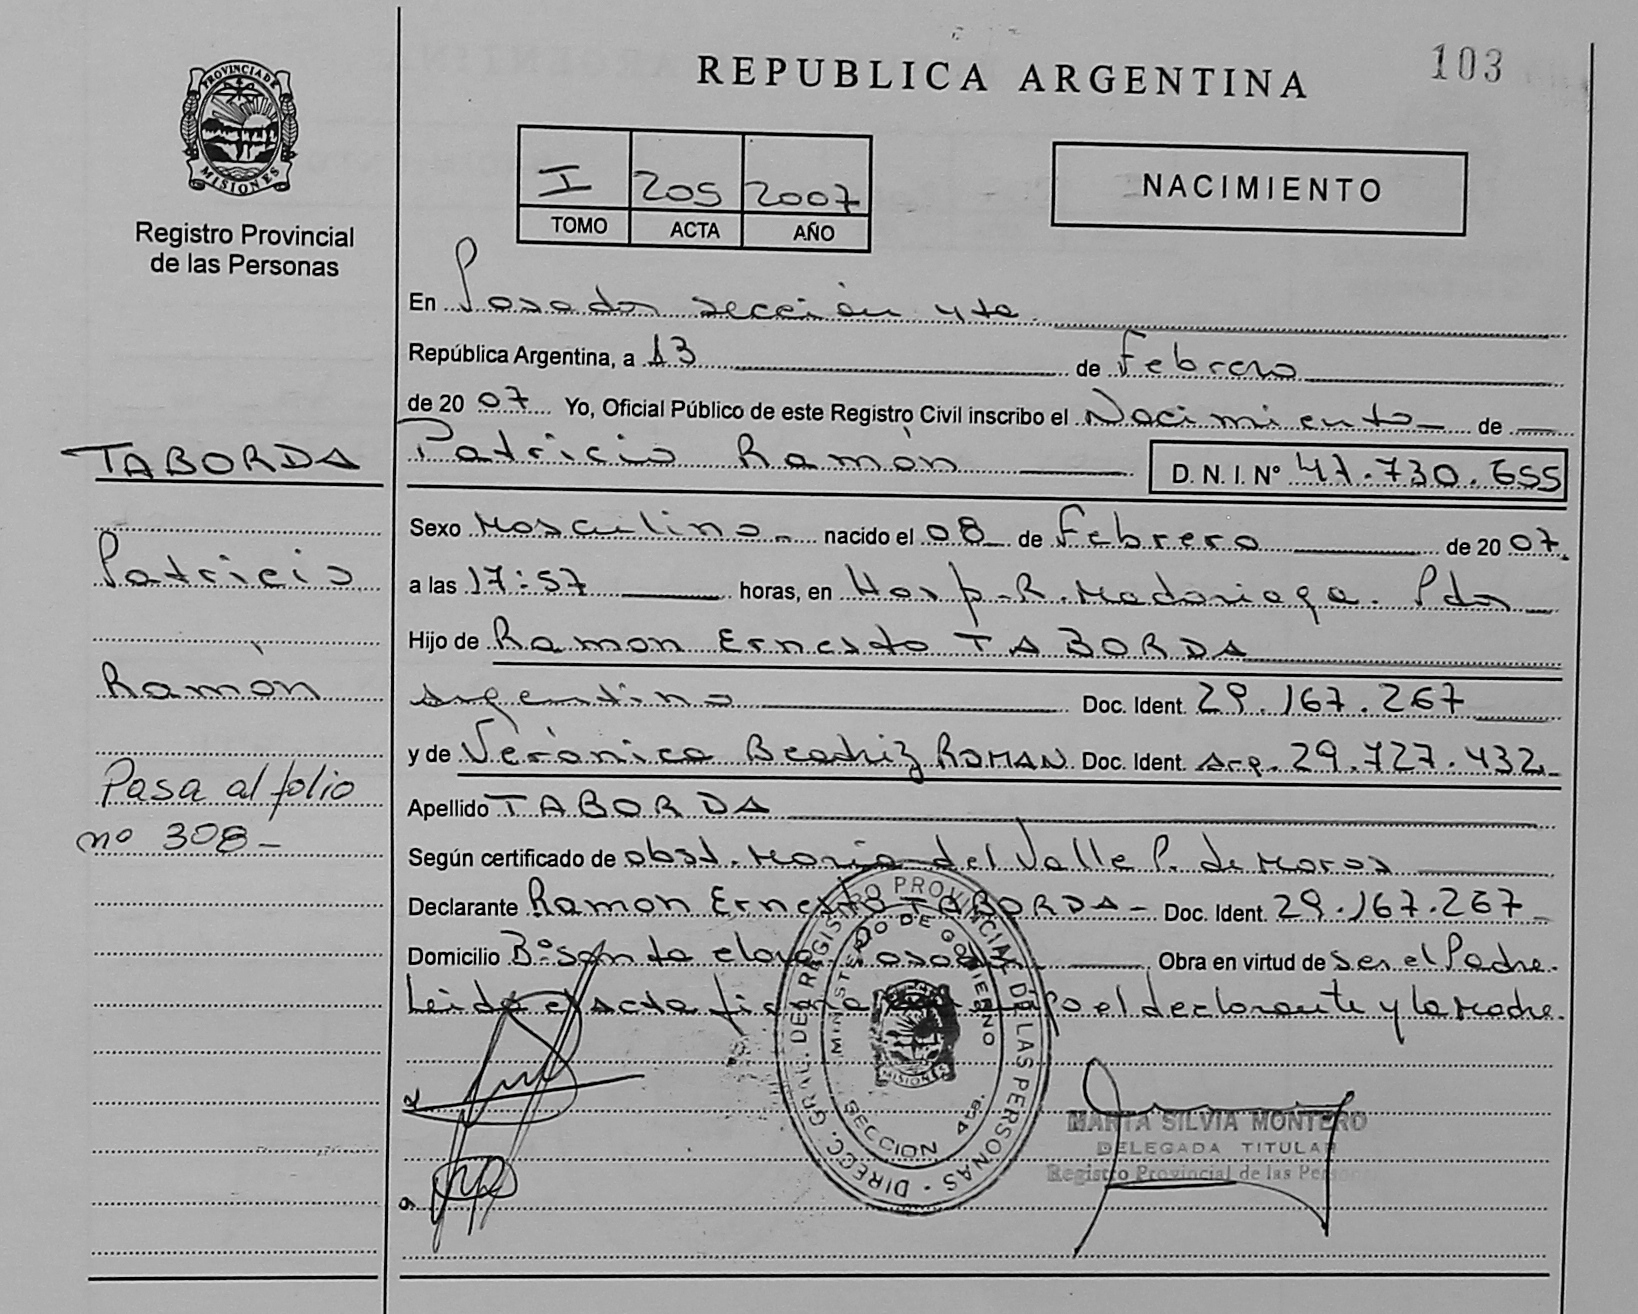 REPUBLICA ARGENTINA
103
PROVINCIA DE
MISIONES
Registro Provincial
de las Personas
I 205 2007
TOMO ACTA AÑO
NACIMIENTO
En Posadas sección 4ta
República Argentina, a 13 de Febrero
de 2007 Yo, Oficial Público de este Registro Civil inscribo el Nacimiento de
Patricio Ramón D. N. I. N° 47.730.655
Sexo Masculino nacido el 08 de Febrero de 2007.
a las 17:57 horas, en Hosp. R. Madariaga. Pdas
Hijo de Ramon Ernesto TABORDA
Argentino Doc. Ident. 29.167.267
y de Verónica Beatriz ROMAN Doc. Ident. Arg. 29.727.432
Apellido TABORDA
Según certificado de obst. Maria del Valle P. de Moroz
Declarante Ramon Ernesto TABORDA - Doc. Ident. 29.167.267
Domicilio B° Santa clara Posadas Obra en virtud de ser el Padre.
Leida el acta el declarante y la Madre.
TABORDA
Patricio
Ramón
Pasa al folio
n° 308 -
DIRECC. GRAL. DEL REGISTRO PROVINCIAL DE LAS PERSONAS
MINISTERIO DE GOBIERNO
MISIONES
SECCION 4ta.
MARTA SILVIA MONTERO
DELEGADA TITULAR
Registro Provincial de las Personas